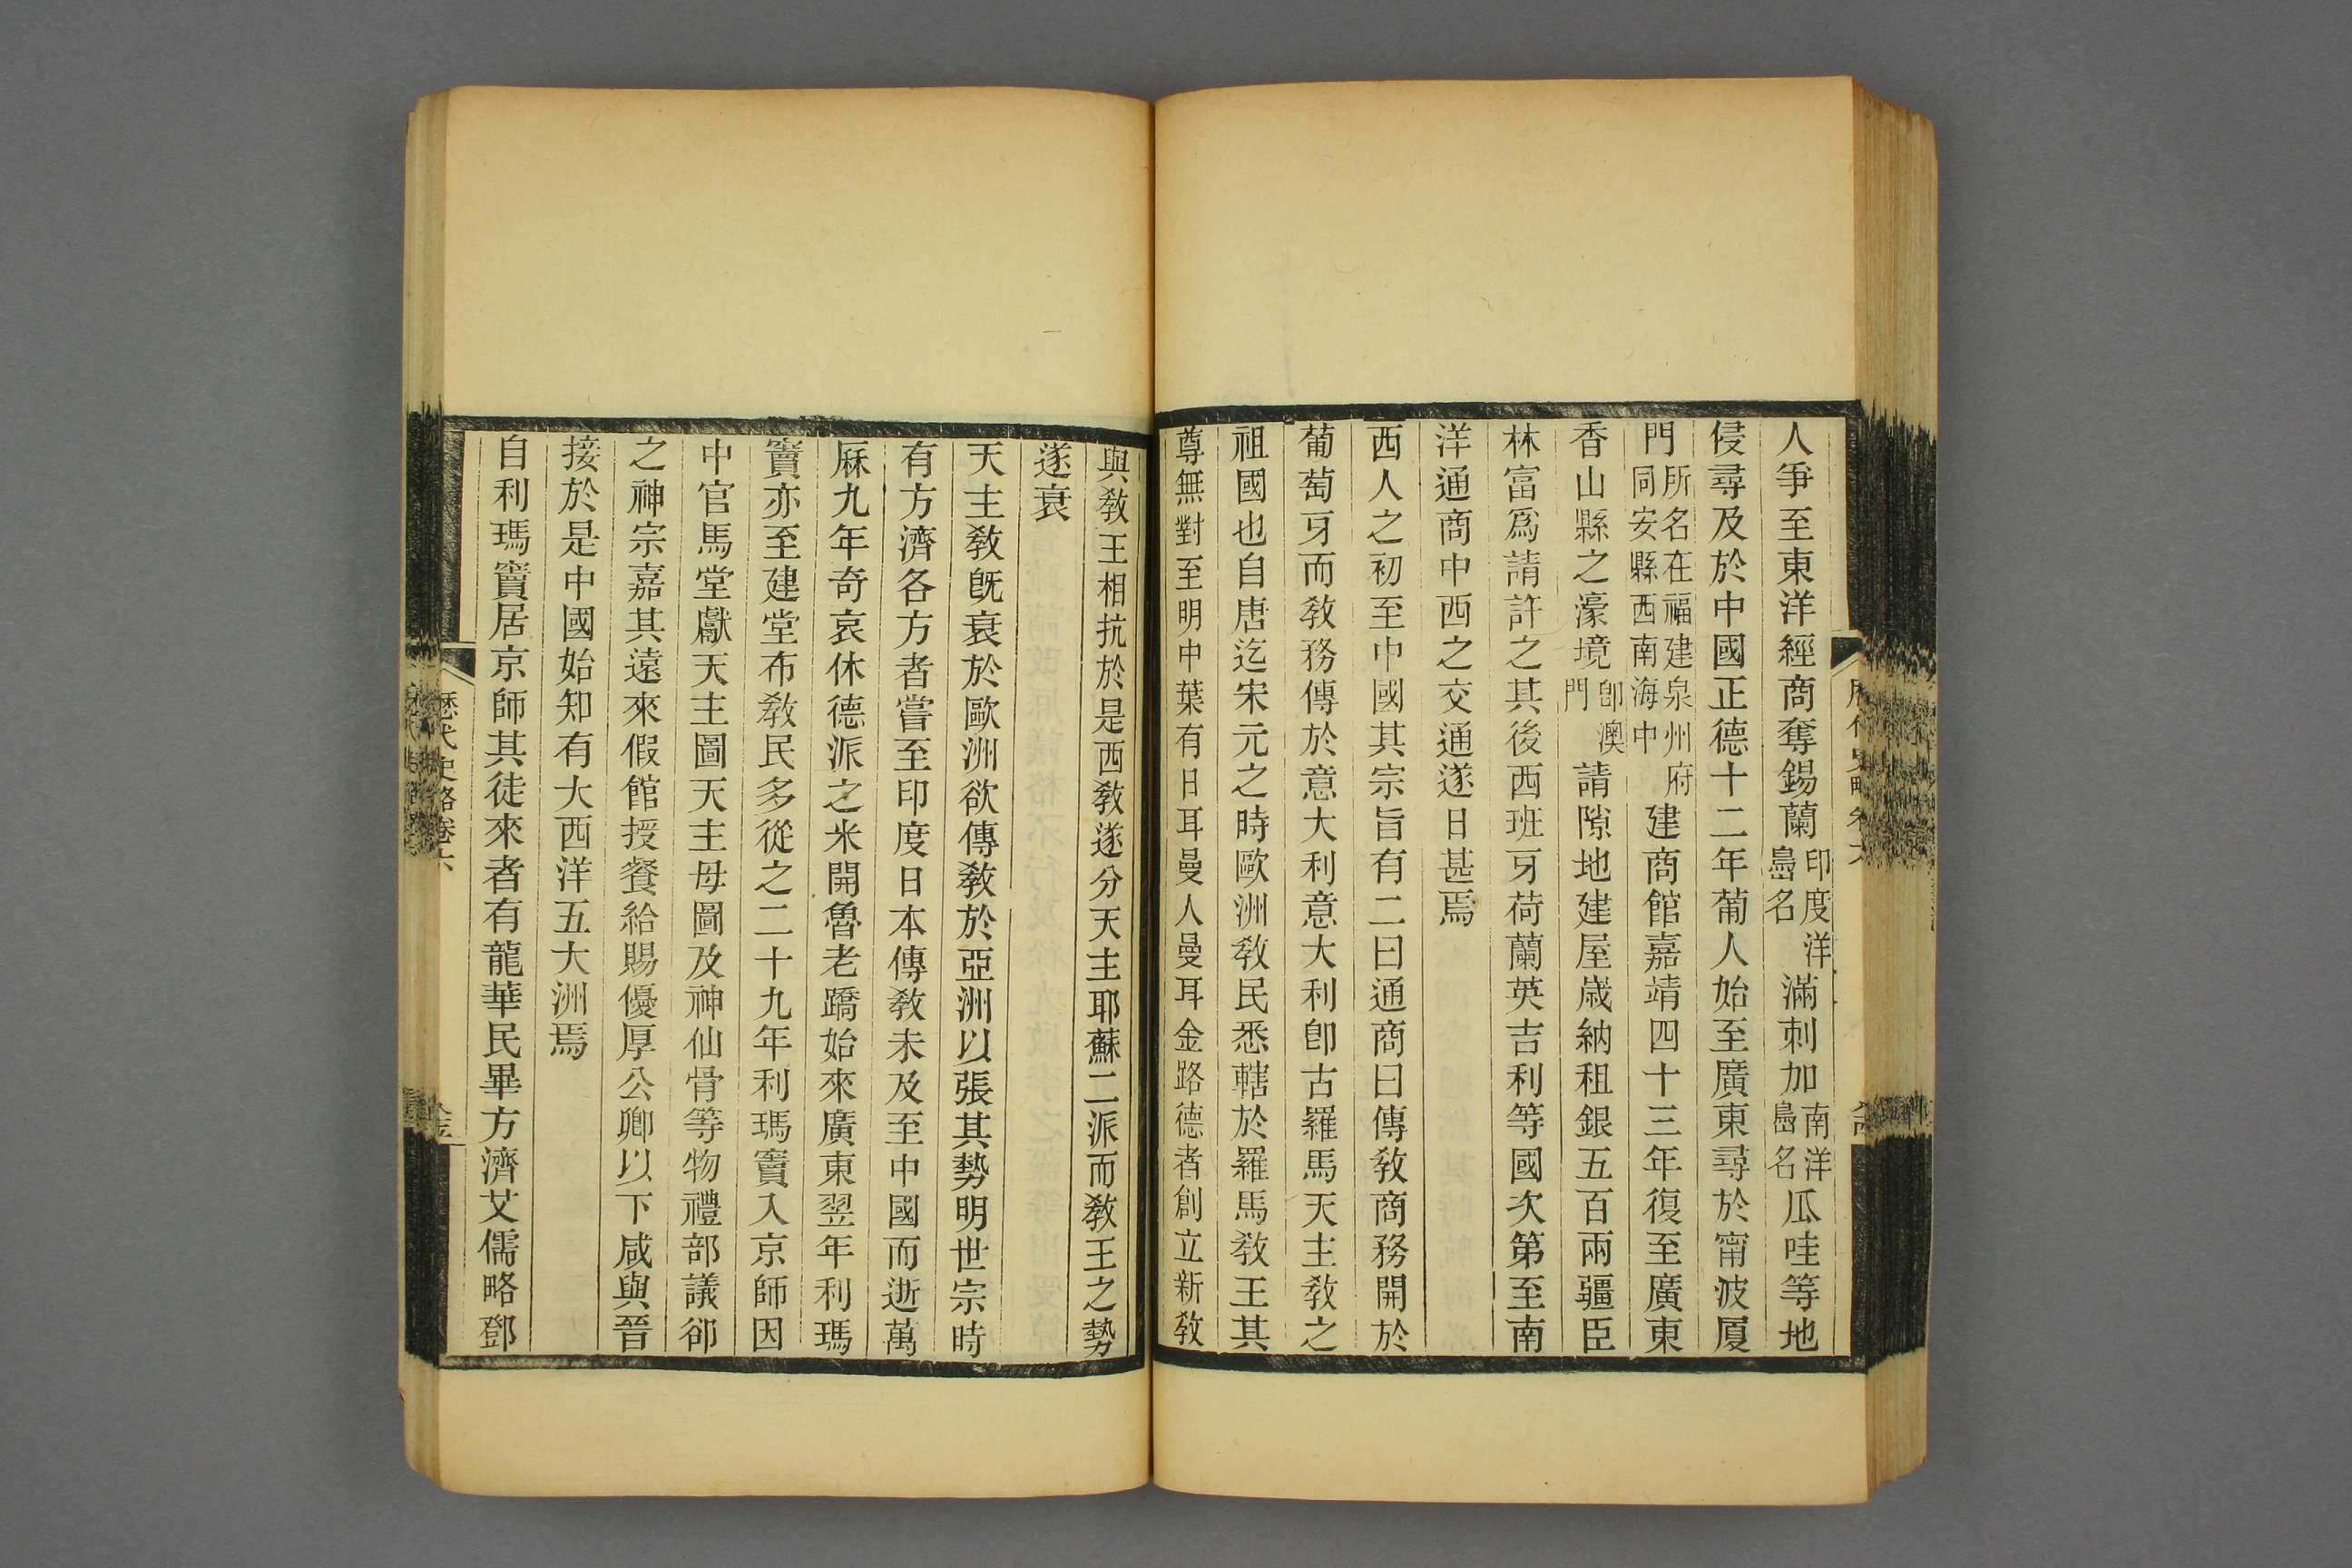 人爭至東洋經商奪錫蘭印度洋島名滿刺加南洋島名瓜哇等地
侵尋及於中國正德十二年葡人始至廣東尋於甯波厦
門所名在福建泉州府同安縣西南海中建商館嘉靖四十三年復至廣東
香山縣之濠境卽澳門請隙地建屋歲納租銀五百兩疆臣
林富爲請許之其後西班牙荷蘭英吉利等國次第至南
洋通商中西之交通遂日甚焉
西人之初至中國其宗旨有二曰通商曰傳敎商務開於
葡萄牙而敎務傳於意大利意大利卽古羅馬天主敎之
祖國也自唐迄宋元之時歐洲敎民悉轄於羅馬敎王其
尊無對至明中葉有日耳曼人曼耳金路德者創立新敎
與敎王相抗於是西敎遂分天主耶蘇二派而敎王之勢
遂衰
天主敎旣衰於歐洲欲傳敎於亞洲以張其勢明世宗時
有方濟各方者嘗至印度日本傳敎未及至中國而逝萬
厤九年奇哀休德派之米開魯老蹻始來廣東翌年利瑪
竇亦至建堂布敎民多從之二十九年利瑪竇入京師因
中官馬堂獻天主圖天主母圖及神仙骨等物禮部議卻
之神宗嘉其遠來假館授餐給賜優厚公卿以下咸與晉
接於是中國始知有大西洋五大洲焉
自利瑪竇居京師其徒來者有龍華民畢方濟艾儒略鄧
歷代史略卷六